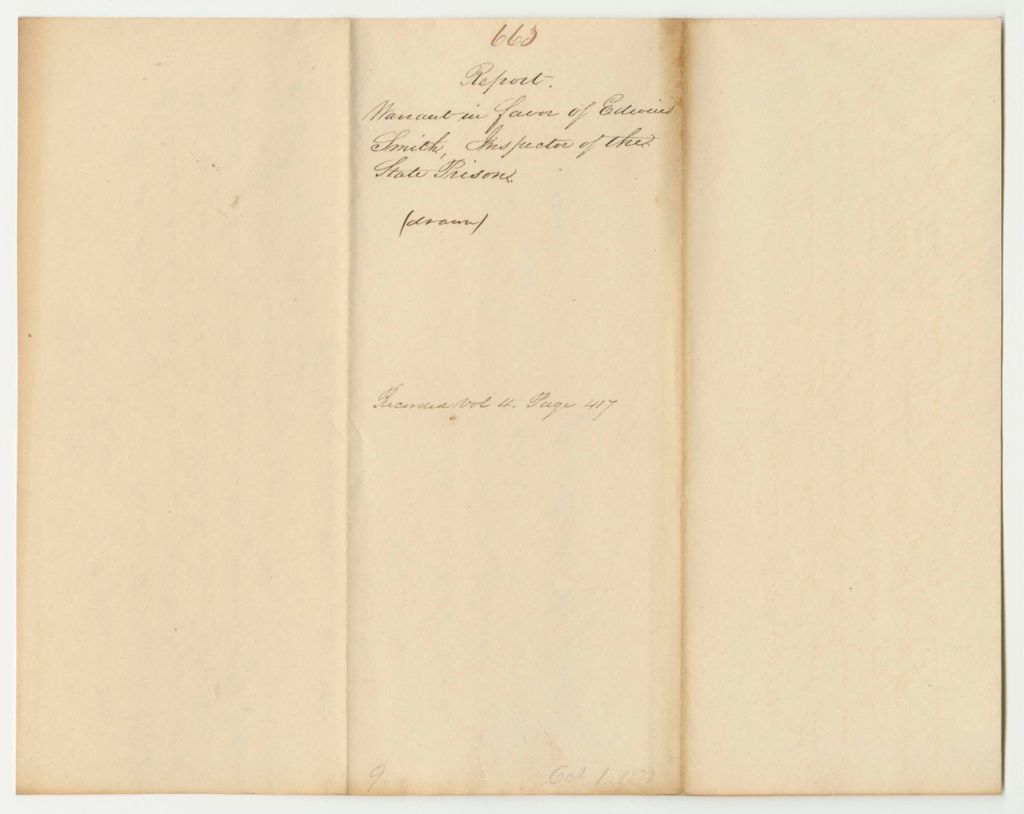 663
Report.
Warrant in favor of Edwin
Smith, Inspector of the
State Prison.
(drawn)
Recorded Vol 4. Page 417
9 Oct 1